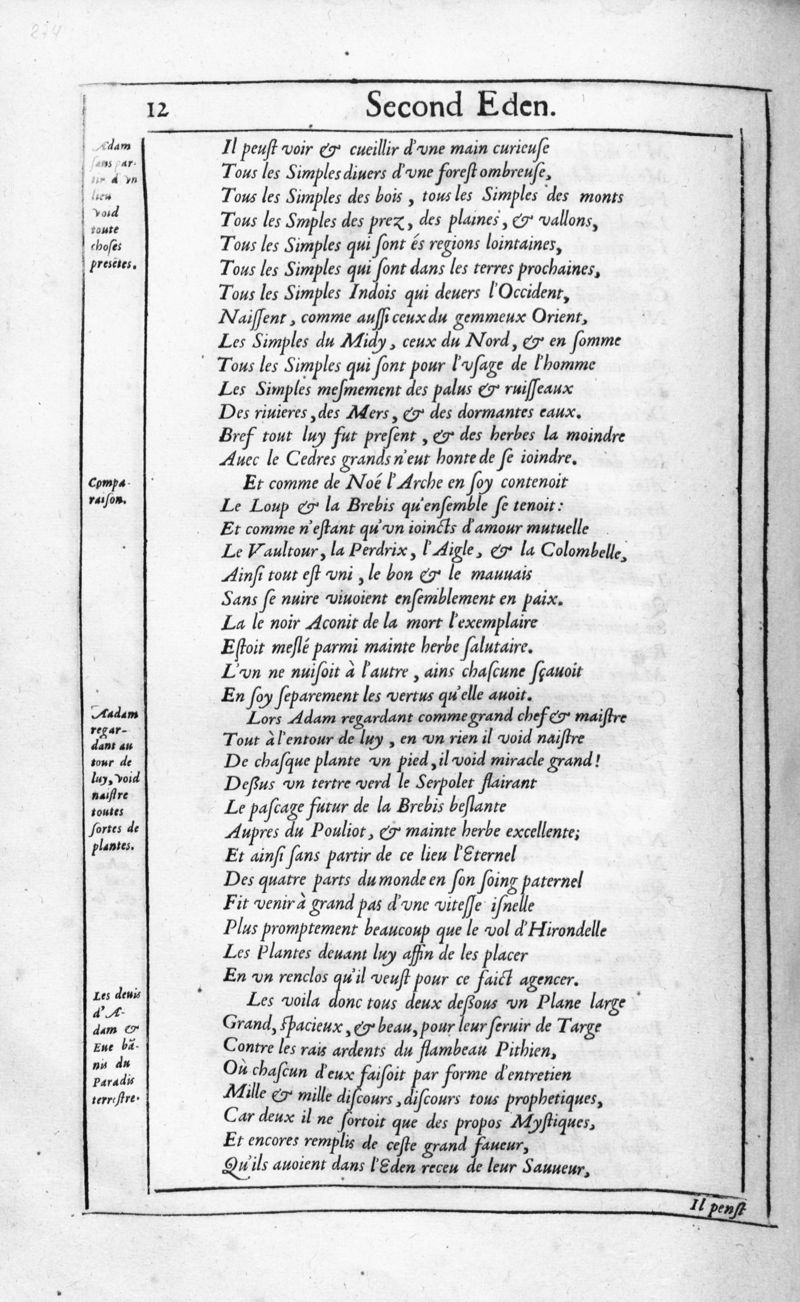 274
12 Second Eden.
Ædam
sans par-
tir d'vn
lieu
void
toute
choses
presẽtes.
Il peuſt voir & cueillir d'vne main curieuſe
Tous les Simples diuers d'vne foreſt ombreuſe,
Tous les Simples des bois, tous les Simples des monts
Tous les Smples des prez, des plaines, & vallons,
Tous les Simples qui ſont és regions lointaines,
Tous les Simples qui ſont dans les terres prochaines,
Tous les Simples Indois qui deuers l'Occident,
Naiſſent, comme auſſi ceux du gemmeux Orient,
Les Simples du Midy, ceux du Nord, & en ſomme
Tous les Simples qui ſont pour l'vſage de l'homme
Les Simples meſmement des palus & ruiſſeaux
Des riuieres, des Mers, & des dormantes eaux.
Bref tout luy fut preſent, & des herbes la moindre
Auec le Cedres grands n'eut honte de ſe ioindre.
Compa-
raiſon.
Et comme de Noé l'Arche en ſoy contenoit
Le Loup & la Brebis qu'enſemble ſe tenoit:
Et comme n'eſtant qu'vn ioincts d'amour mutuelle
Le Vaultour, la Perdrix, l'Aigle, & la Colombelle,
Ainſi tout eſt vni, le bon & le mauuais
Sans ſe nuire viuoient enſemblement en paix.
La le noir Aconit de la mort l'exemplaire
Eſtoit meſlé parmi mainte herbe ſalutaire.
L'vn ne nuiſoit à l'autre, ains chaſcune ſçauoit
En ſoy ſeparement les vertus qu'elle auoit.
Aadam
regar-
dant au
tour de
luy, void
naiſtre
toutes
ſortes de
plantes.
Lors Adam regardant comme grand chef & maiſtre
Tout à l'entour de luy, en vn rien il void naiſtre
De chaſque plante vn pied, il void miracle grand!
Deßus vn tertre verd le Serpolet flairant
Le paſcage futur de la Brebis beſlante
Aupres du Pouliot, & mainte herbe excellente;
Et ainſi ſans partir de ce lieu l'Eternel
Des quatre parts du monde en ſon ſoing paternel
Fit venir à grand pas d'vne viteſſe iſnelle
Plus promptement beaucoup que le vol d'Hirondelle
Les Plantes deuant luy affin de les placer
En vn renclos qu'il veuſt pour ce faict agencer.
Les deuis
d'Æ-
dam &
Eue bã-
nis du
Paradis
terreſtre.
Les voila donc tous deux deßous vn Plane large
Grand, ſpacieux, & beau, pour leur ſeruir de Targe
Contre les rais ardents du flambeau Pithien,
Où chaſcun d'eux faiſoit par forme d'entretien
Mille & mille diſcours, diſcours tous prophetiques,
Car deux il ne ſortoit que des propos Myſtiques,
Et encores remplis de ceſte grand faueur,
Qu'ils auoient dans l'Eden receu de leur Sauueur,
Il penſt